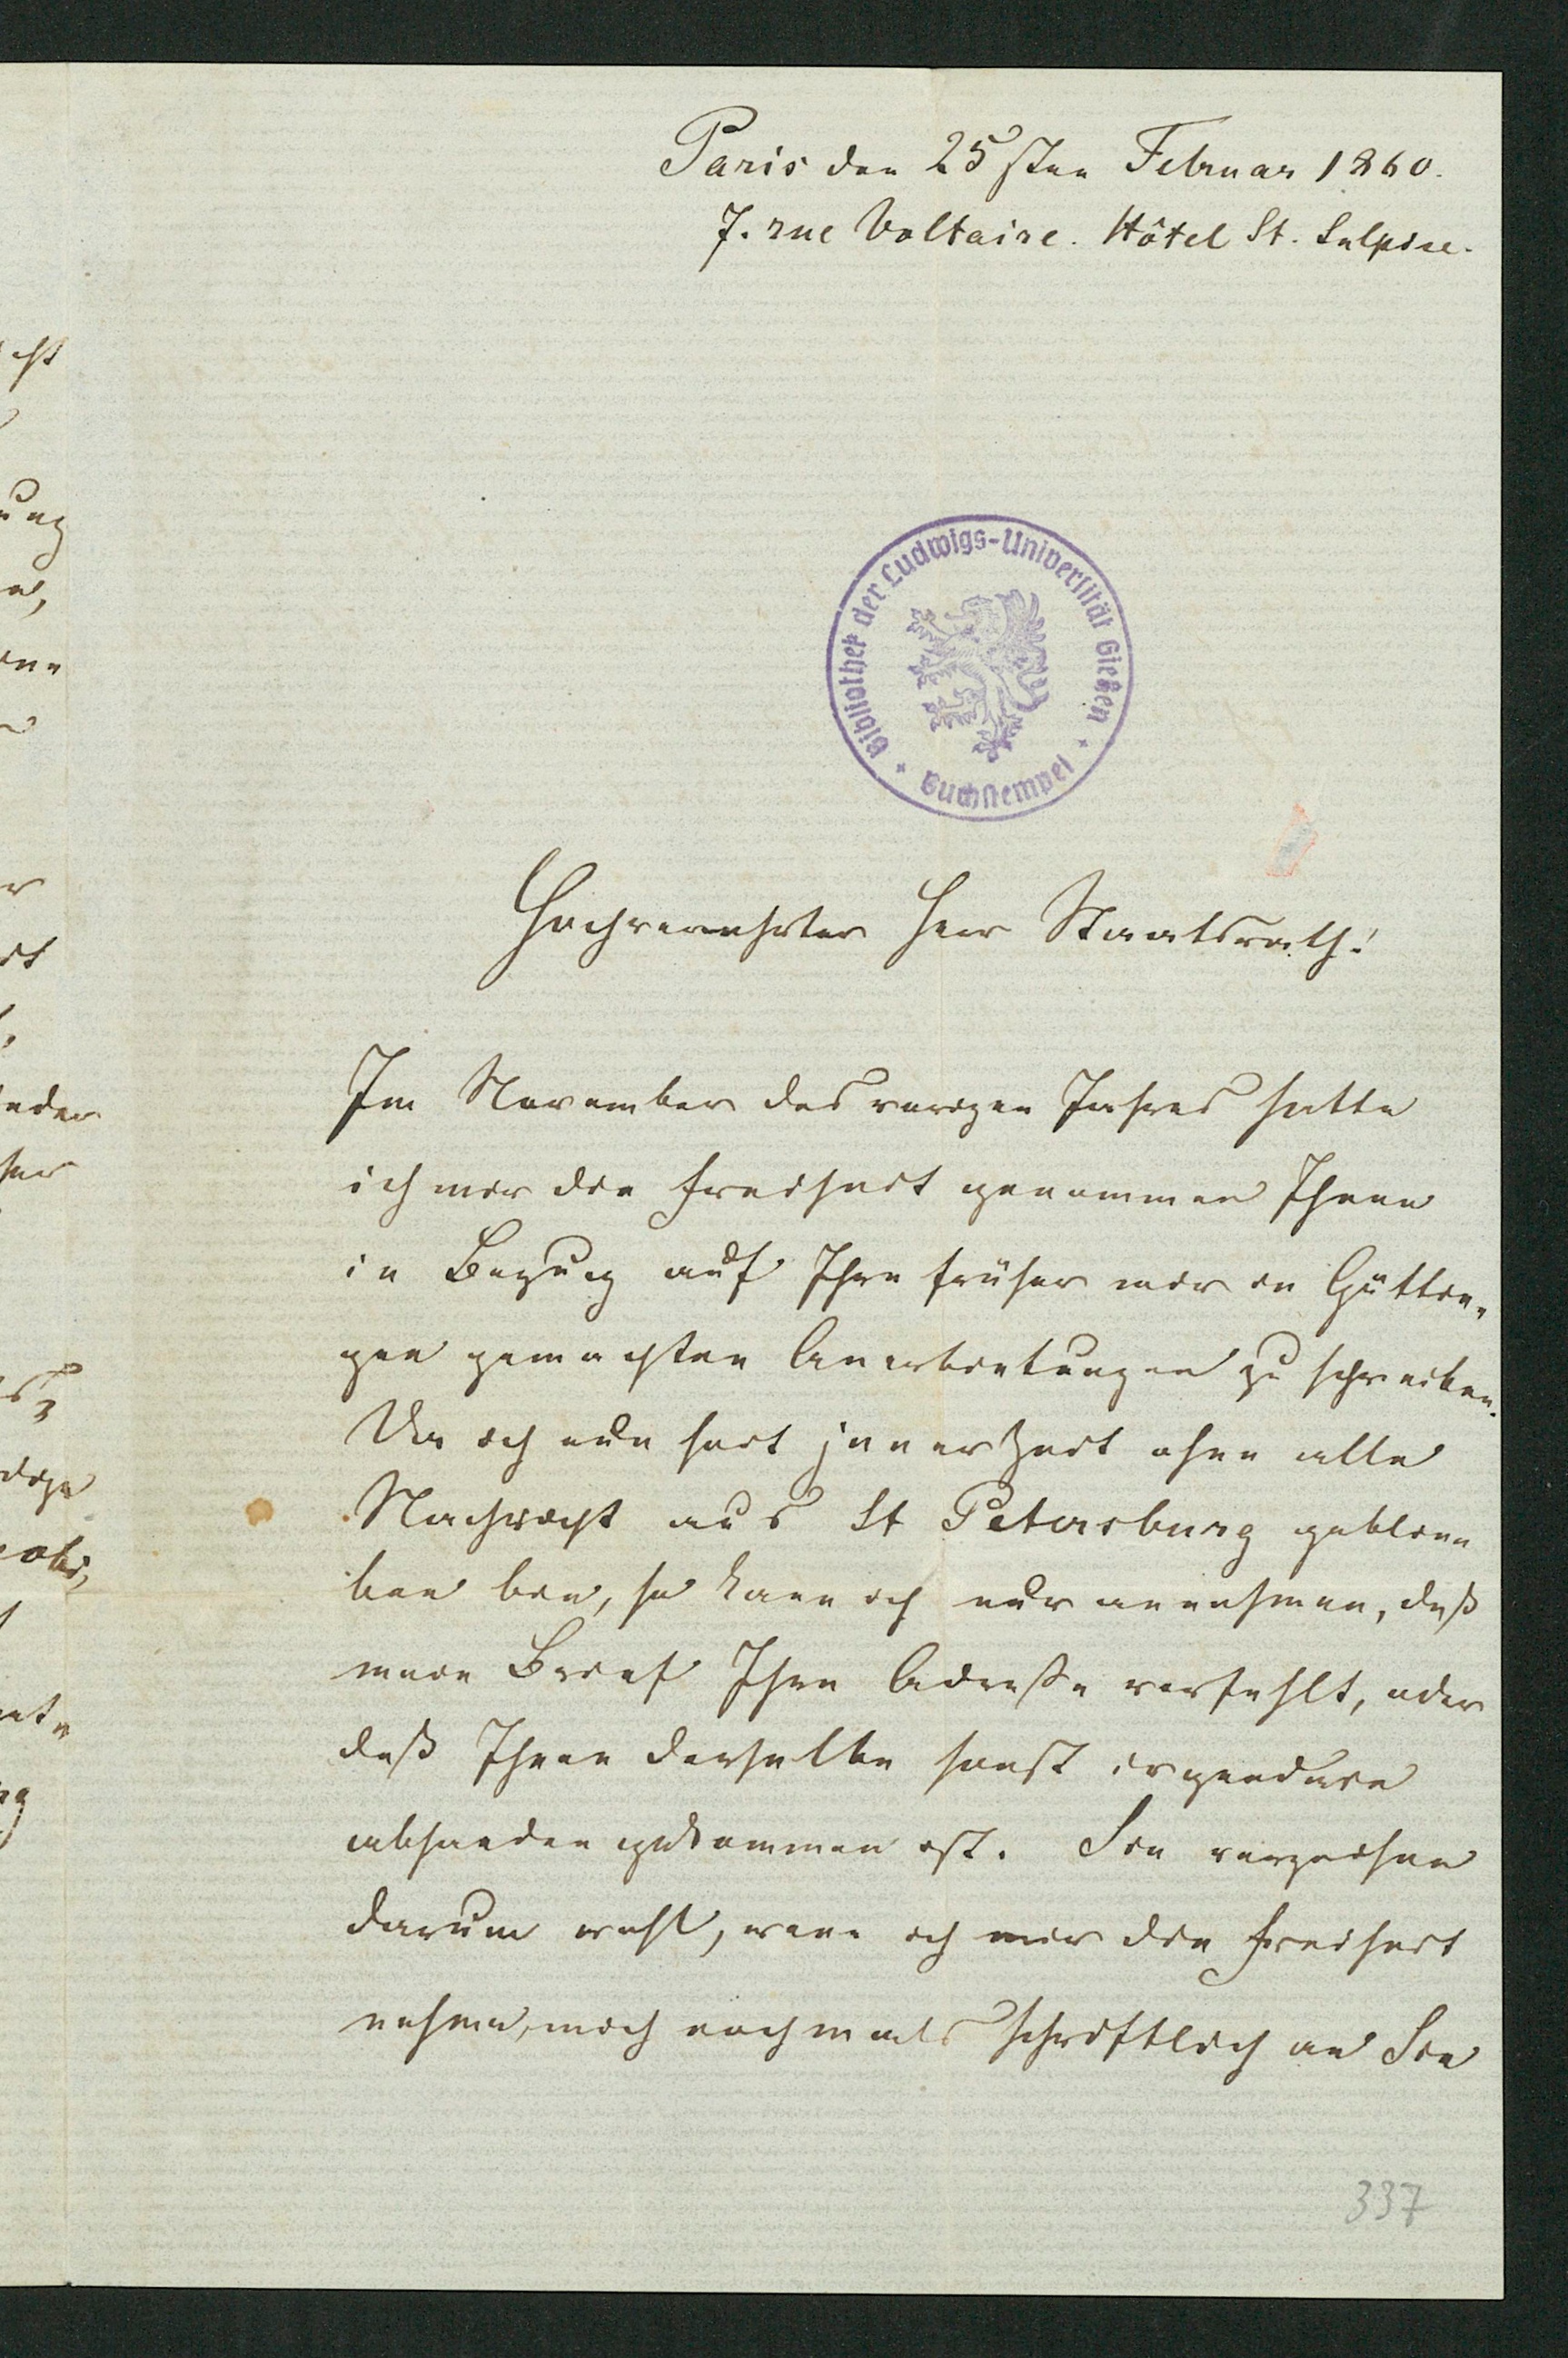 Paris den 25sten Februar 1860.
7. rue Voltaire. Hôtel St. Sulpice.
Bibliothek der Ludwigs-Universität Gießen
Buchstempel
Hochverehrter Herr Staatsrath!
Im November des vorigen Jahres hatte
ich mir die Freiheit genommen Ihnen
in Bezug auf Ihre früher mir in Göttin-
gen gemachten Anerbietungen zu schreiben.
Da ich nun seit jener Zeit ohne alle
Nachricht aus St Petersburg geblie-
ben bin, so kann ich nur annehmen, daß
mein Brief Ihre Adresse verfehlt, oder
daß Ihnen derselbe sonst irgendwie
abhanden gekommen ist. Sie verzeihen
darum wohl, wenn ich mir die Freiheit
nehme, mich nochmals schriftlich an Sie
337